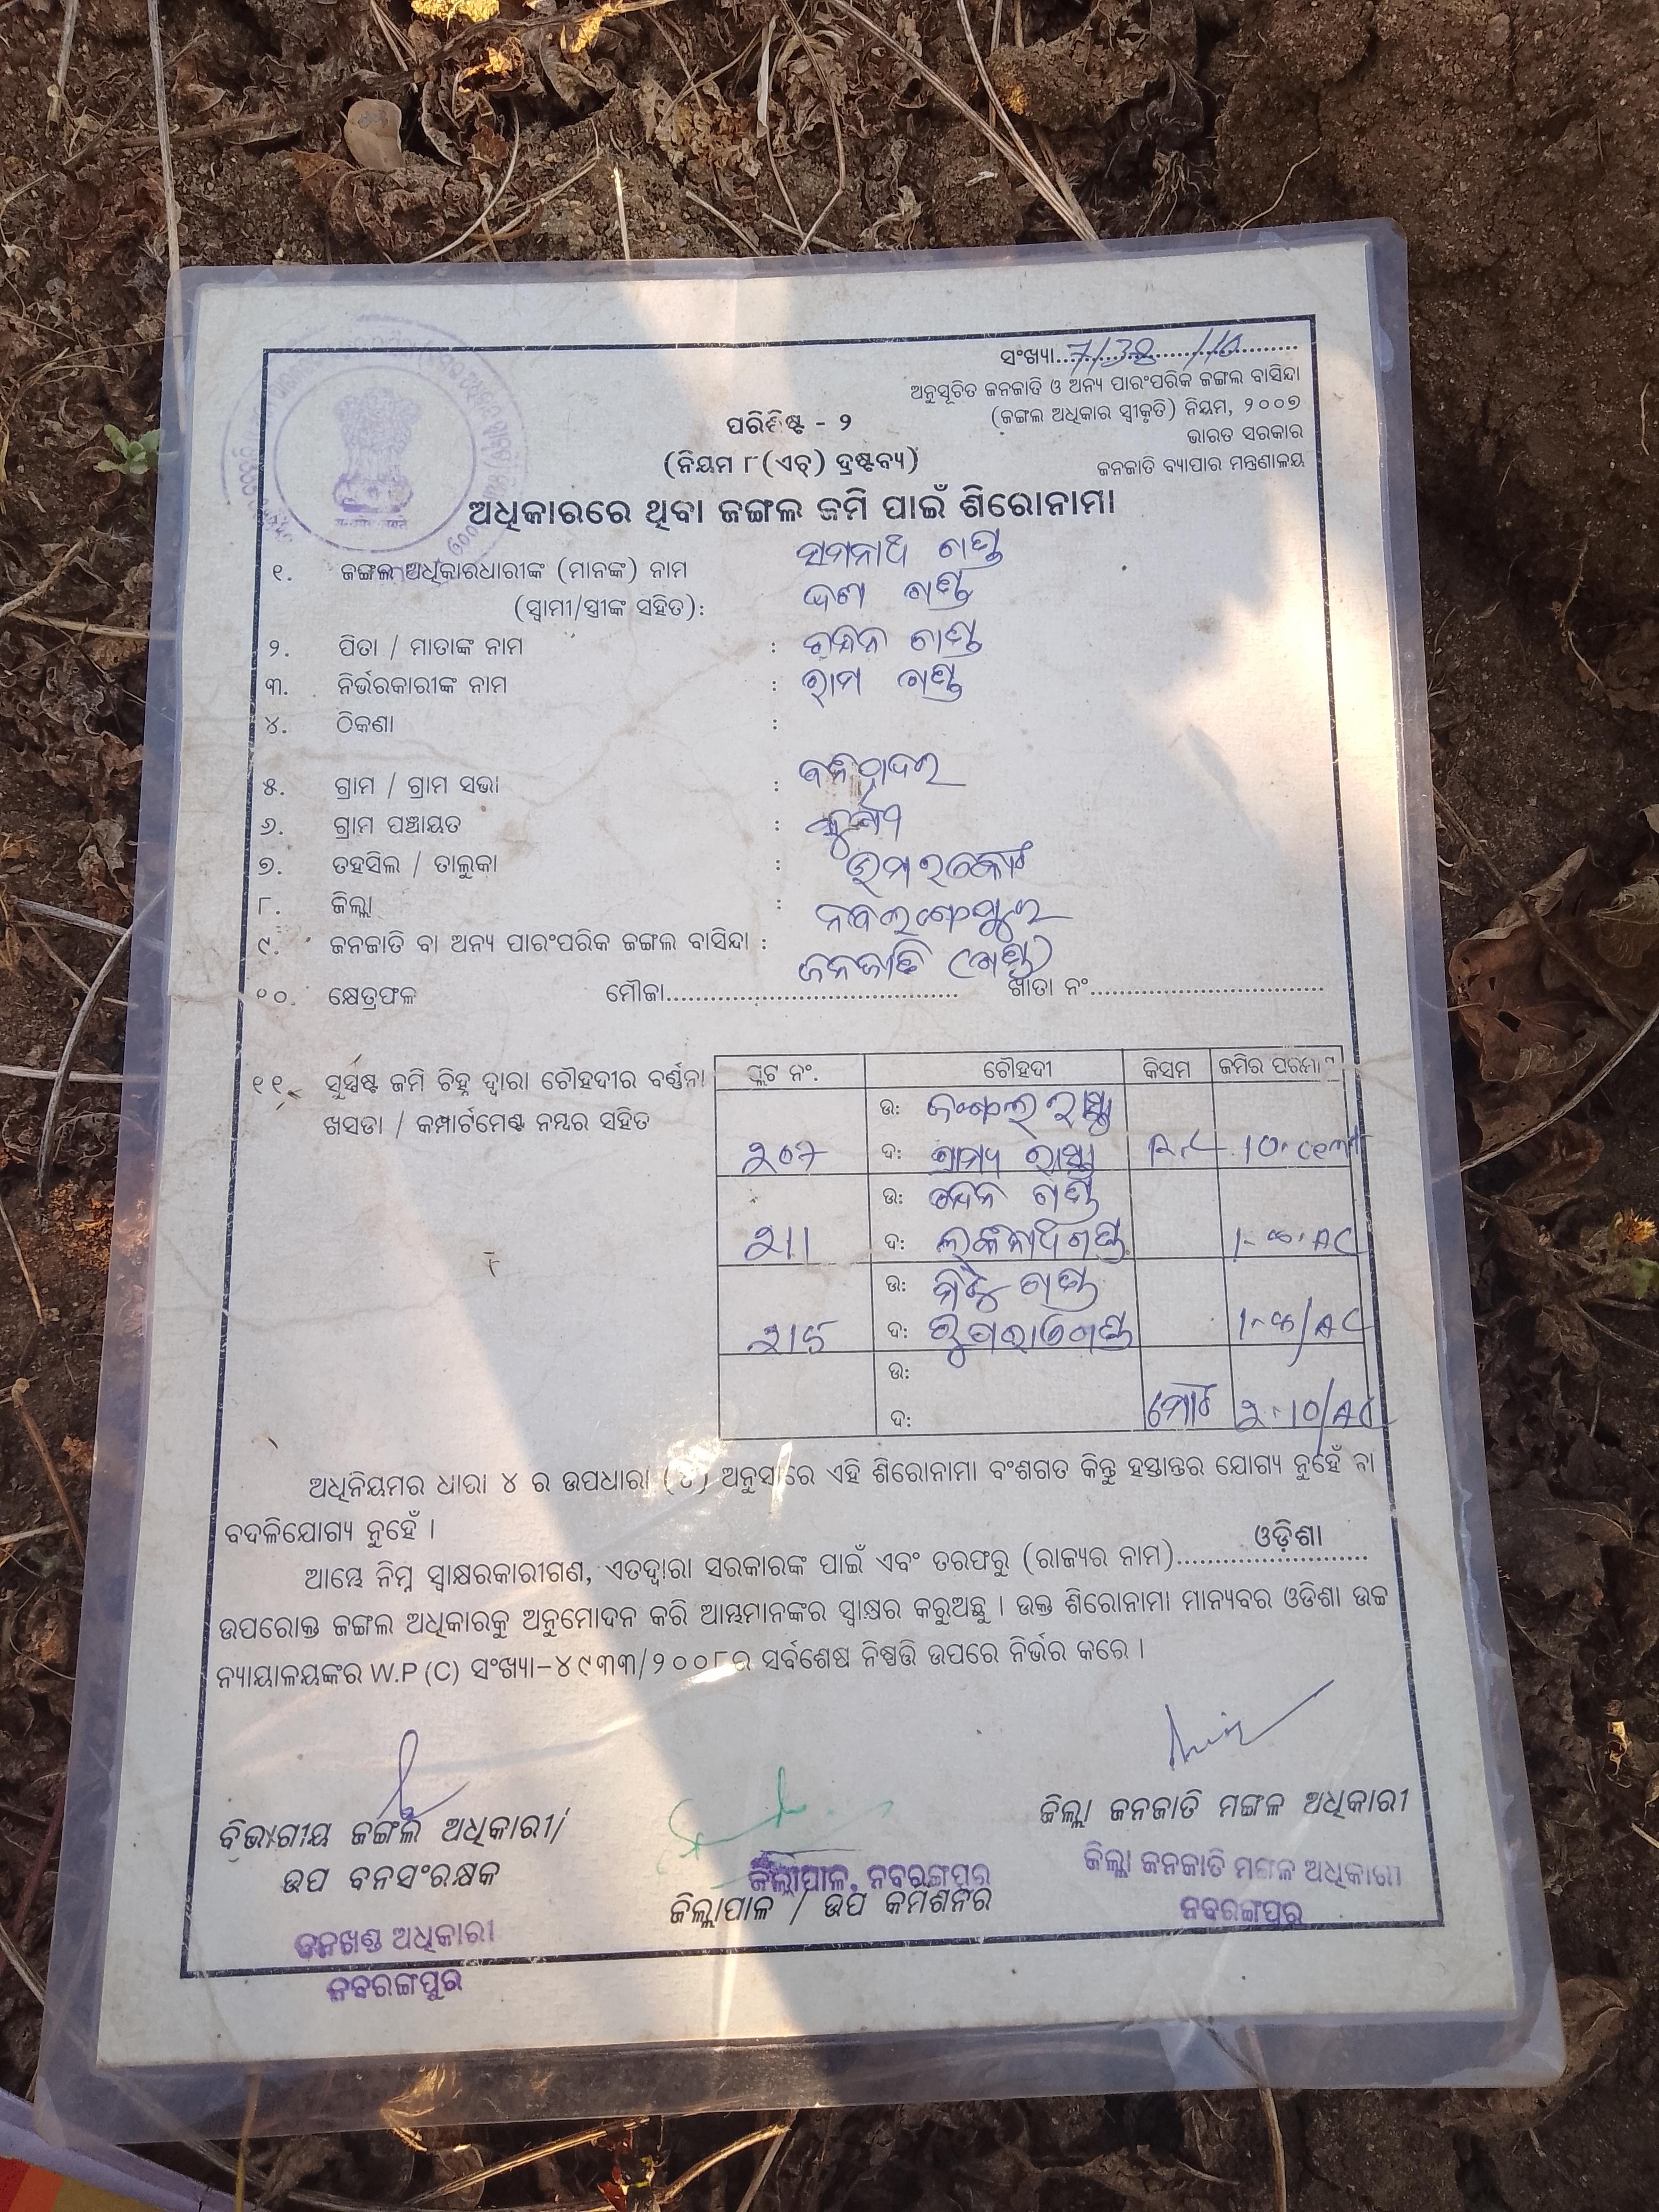 ସଂଖ୍ୟା..7/38../10
ଅନୁସୂଚିତ ଜନଜାତି ଓ ଅନ୍ୟ ପାରଂପରିକ ଜଙ୍ଗଲ ବାସିନ୍ଦା
(ଜଙ୍ଗଲ ଅଧିକାର ସ୍ୱୀକୃତି) ନିୟମ, ୨୦୦୭
ଭାରତ ସରକାର
ଜନଜାତି ବ୍ୟାପାର ମନ୍ତ୍ରଣାଳୟ
ପରିଶିଷ୍ଟ - ୨
(ନିୟମ ୮(ଏଚ୍) ଦ୍ରଷ୍ଟବ୍ୟ)
ଅଧିକାରରେ ଥିବା ଜଙ୍ଗଲ ଜମି ପାଇଁ ଶିରୋନାମା
୧. ଜଙ୍ଗଲ ଅଧିକାରଧାରୀଙ୍କ (ମାନଙ୍କ) ନାମ ଗଣ୍ଡ
(ସ୍ୱାମୀ/ସ୍ତ୍ରୀଙ୍କ ସହିତ): ଗଣ୍ଡ
୨. ପିତା / ମାତାଙ୍କ ନାମ : ଗଣ୍ଡ
୩. ନିର୍ଭରକାରୀଙ୍କ ନାମ : ରାମ ଗଣ୍ଡ
୪. ଠିକଣା :
୫. ଗ୍ରାମ / ଗ୍ରାମ ସଭା :
୬. ଗ୍ରାମ ପଞ୍ଚାୟତ :
୭. ତହସିଲ / ତାଲୁକା : ଉମରକୋଟ
୮. ଜିଲ୍ଲା : ନବରଙ୍ଗପୁର
୯. ଜନଜାତି ବା ଅନ୍ୟ ପାରଂପରିକ ଜଙ୍ଗଲ ବାସିନ୍ଦା : ଜନଜାତି (ଗଣ୍ଡ)
୧୦. କ୍ଷେତ୍ରଫଳ ମୌଜା........................................ ଖାତା ନଂ................................
୧୧. ସୁସ୍ପଷ୍ଟ ଜମି ଚିହ୍ନ ଦ୍ୱାରା ଚୌହଦୀର ବର୍ଣ୍ଣନା
ଖସଡା / କମ୍ପାର୍ଟମେଣ୍ଟ ନମ୍ବର ସହିତ
ପ୍ଲଟ ନଂ. ଚୌହଦୀ କିସମ ଜମିର ପରମାଣ
ଉ: ଜଙ୍ଗଲ ରାସ୍ତା
୨୦୭ ଦ: ଗ୍ରାମ୍ୟ ରାସ୍ତା 10. cent
ଉ: ଗଣ୍ଡ
୨11 ଦ: ଗଣ୍ଡ AC
ଉ: ଗଣ୍ଡ
୨1୫ ଦ: ଗଣ୍ଡ AC
ଉ:
ଦ: ମୋଟ ୨.10/AC
ଅଧିନିୟମର ଧାରା ୪ ର ଉପଧାରା (୪) ଅନୁସାରେ ଏହି ଶିରୋନାମା ବଂଶଗତ କିନ୍ତୁ ହସ୍ତାନ୍ତର ଯୋଗ୍ୟ ନୁହେଁ ବା
ବଦଳିଯୋଗ୍ୟ ନୁହେଁ ।
ଆମ୍ଭେ ନିମ୍ନ ସ୍ୱାକ୍ଷରକାରୀଗଣ, ଏତଦ୍ୱାରା ସରକାରଙ୍କ ପାଇଁ ଏବଂ ତରଫରୁ (ରାଜ୍ୟର ନାମ)......ଓଡ଼ିଶା......
ଉପରୋକ୍ତ ଜଙ୍ଗଲ ଅଧିକାରକୁ ଅନୁମୋଦନ କରି ଆମ୍ଭମାନଙ୍କର ସ୍ୱାକ୍ଷର କରୁଅଛୁ । ଉକ୍ତ ଶିରୋନାମା ମାନ୍ୟବର ଓଡିଶା ଉଚ୍ଚ
ନ୍ୟାୟାଳୟଙ୍କର W.P (C) ସଂଖ୍ୟା-୪୯୩୩/୨୦୦୮ର ସର୍ବଶେଷ ନିଷ୍ପତ୍ତି ଉପରେ ନିର୍ଭର କରେ ।
ବିଭାଗୀୟ ଜଙ୍ଗଲ ଅଧିକାରୀ/
ଉପ ବନସଂରକ୍ଷକ
ବନଖଣ୍ଡ ଅଧିକାରୀ
ନବରଙ୍ଗପୁର
ଜିଲ୍ଲାପାଳ, ନବରଙ୍ଗପୁର
ଜିଲ୍ଲାପାଳ / ଉପ କମିଶନର
ଜିଲ୍ଲା ଜନଜାତି ମଙ୍ଗଳ ଅଧିକାରୀ
ଜିଲ୍ଲା ଜନଜାତି ମଙ୍ଗଳ ଅଧିକାରୀ
ନବରଙ୍ଗପୁର